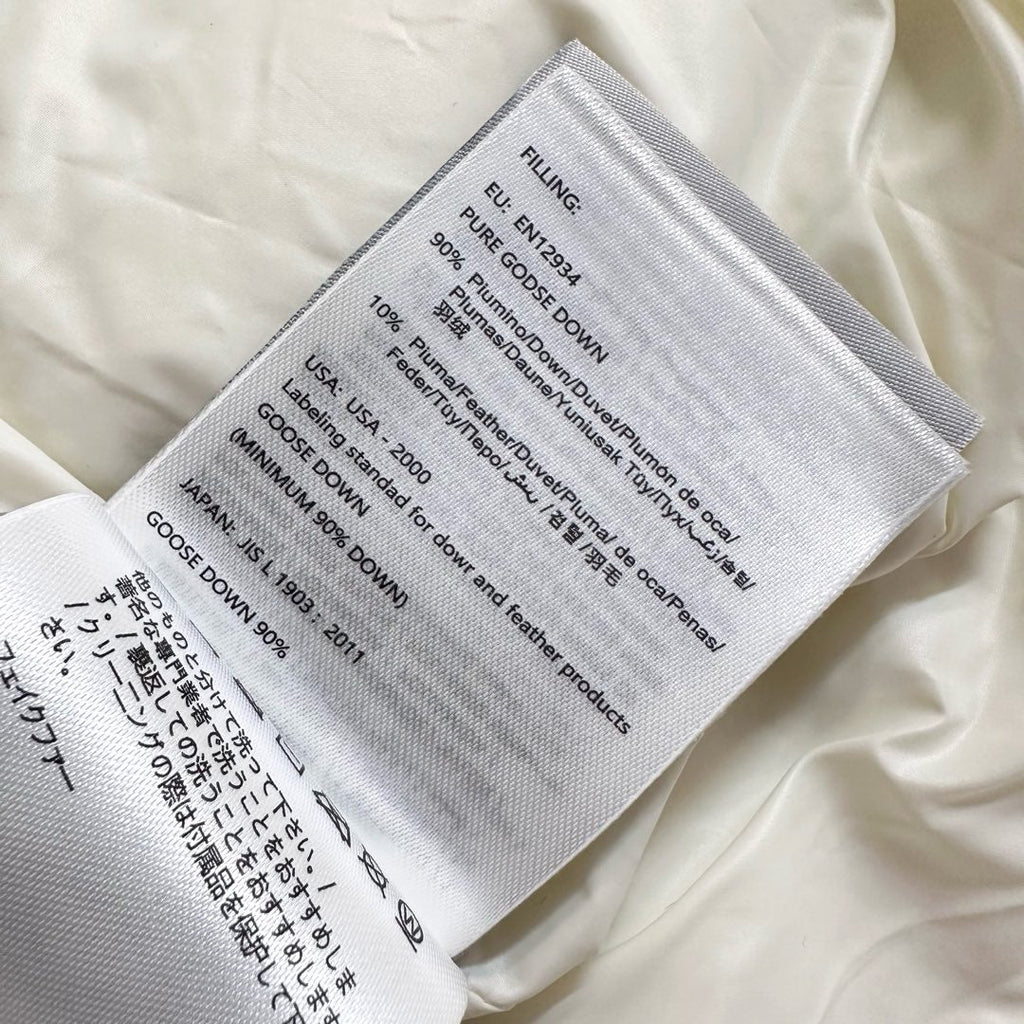 FILLING:
EU: EN12934
PURE GODSE DOWN
90% Plumino/Down/Duvet/Plumón de oca/
Plumas/Daune/Yuniusak Tüy/Пух/زغب/솜털/
羽绒
10% Pluma/Feather/Duvet/Pluma/ de oca/Penas/
Feder/Tüy/Перо/ريش/깃털/羽毛
USA: USA - 2000
Labeling standad for dowr and feather products
GOOSE DOWN
(MINIMUM 90% DOWN)
JAPAN: JIS L 1903 : 2011
GOOSE DOWN 90%
他のものと分けて洗って下さい。/
著名な専門業者で洗うことをおすすめしま
す。/ 裏返しての洗うことをおすすめします
/ クリーニングの際は付属品を保護して下
さい。
フェイクファー